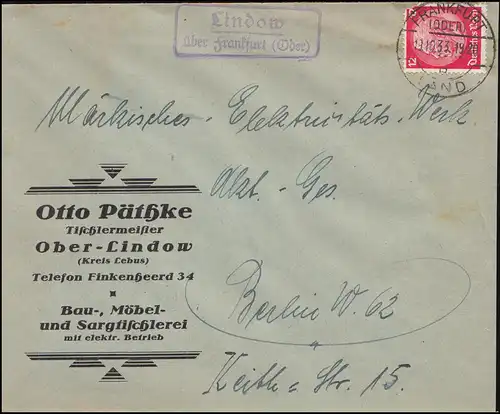 Lindow
über Frankfurt (Oder)
FRANKFURT
(ODER)
LAND
12
Märkisches-Elektrizitäts-Werk
Akt.-Ges.
Otto Päthke
Tischlermeister
Ober-Lindow
(Kreis Lebus)
Telefon Finkenheerd 34
Bau-, Möbel-
und Sargtischlerei
mit elektr. Betrieb
Berlin W. 62
Keith-Str. 15.